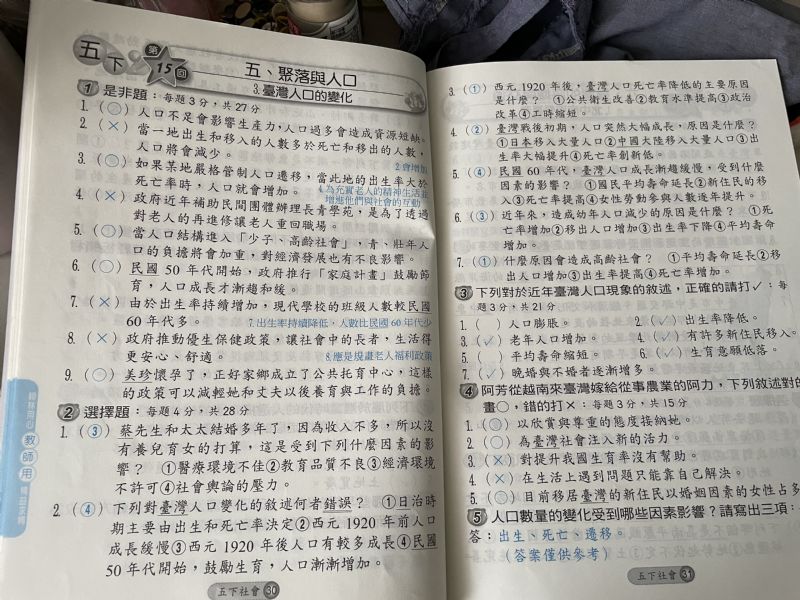 五下
第15回
五、聚落與人口
3.臺灣人口的變化
1 是非題：每題3分，共27分
1.（○）人口不足會影響生產力，人口過多會造成資源短缺。
2.（×）當一地出生和移入的人數多於死亡和移出的人數，
人口將會減少。
2.會增加
3.（○）如果某地嚴格管制人口遷移，當此地的出生率大於
死亡率時，人口就會增加。
4.為充實老人的精神生活並
增進他們與社會的互動
4.（×）政府近年補助民間團體辦理長青學苑，是為了透過
對老人的再進修讓老人重回職場。
5.（○）當人口結構進入「少子、高齡社會」，青、壯年人
口的負擔將會加重，對經濟發展也有不良影響。
6.（○）民國50年代開始，政府推行「家庭計畫」鼓勵節
育，人口成長才漸趨和緩。
7.（×）由於出生率持續增加，現代學校的班級人數較民國
60年代多。
7.出生率持續降低，人數比民國60年代少
8.（×）政府推動優生保健政策，讓社會中的長者，生活得
更安心、舒適。
8.應是規畫老人福利政策
9.（○）美珍懷孕了，正好家鄉成立了公共托育中心，這樣
的政策可以減輕她和丈夫以後養育與工作的負擔。
2 選擇題：每題4分，共28分
1.（③）蔡先生和太太結婚多年了，因為收入不多，所以沒
有養兒育女的打算，這是受到下列什麼因素的影
響？ ①醫療環境不佳②教育品質不良③經濟環境
不許可④社會輿論的壓力。
2.（④）下列對臺灣人口變化的敘述何者錯誤？ ①日治時
期主要由出生和死亡率決定②西元1920年前人口
成長緩慢③西元1920年後人口有較多成長④民國
50年代開始，鼓勵生育，人口漸漸增加。
教師用
五下社會 30
3.（①）西元1920年後，臺灣人口死亡率降低的主要原因
是什麼？ ①公共衛生改善②教育水準提高③政治
改革④工時縮短。
4.（②）臺灣戰後初期，人口突然大幅成長，原因是什麼？
①日本移入大量人口②中國大陸移入大量人口③出
生率大幅提升④死亡率創新低。
5.（④）民國60年代，臺灣人口成長漸趨緩慢，受到什麼
因素的影響？ ①國民平均壽命延長②新住民的移
入③死亡率提高④女性勞動參與人數逐年提升。
6.（③）近年來，造成幼年人口減少的原因是什麼？ ①死
亡率增加②移出人口增加③出生率下降④平均壽命
增加。
7.（①）什麼原因會造成高齡社會？ ①平均壽命延長②移
出人口增加③出生率提高④死亡率增加。
3 下列對於近年臺灣人口現象的敘述，正確的請打✓：每
題3分，共21分
1.（ ）人口膨脹。 2.（✓）出生率降低。
3.（✓）老年人口增加。 4.（✓）有許多新住民移入。
5.（ ）平均壽命縮短。 6.（✓）生育意願低落。
7.（✓）晚婚與不婚者逐漸增多。
4 阿芳從越南來臺灣嫁給從事農業的阿力，下列敘述對的
畫○，錯的打×：每題3分，共15分
1.（○）以欣賞與尊重的態度接納她。
2.（○）為臺灣社會注入新的活力。
3.（×）對提升我國生育率沒有幫助。
4.（×）在生活上遇到問題只能靠自己解決。
5.（○）目前移居臺灣的新住民以婚姻因素的女性占多
5 人口數量的變化受到哪些因素影響？請寫出三項：
答：出生、死亡、遷移。
（答案僅供參考）
五下社會 31